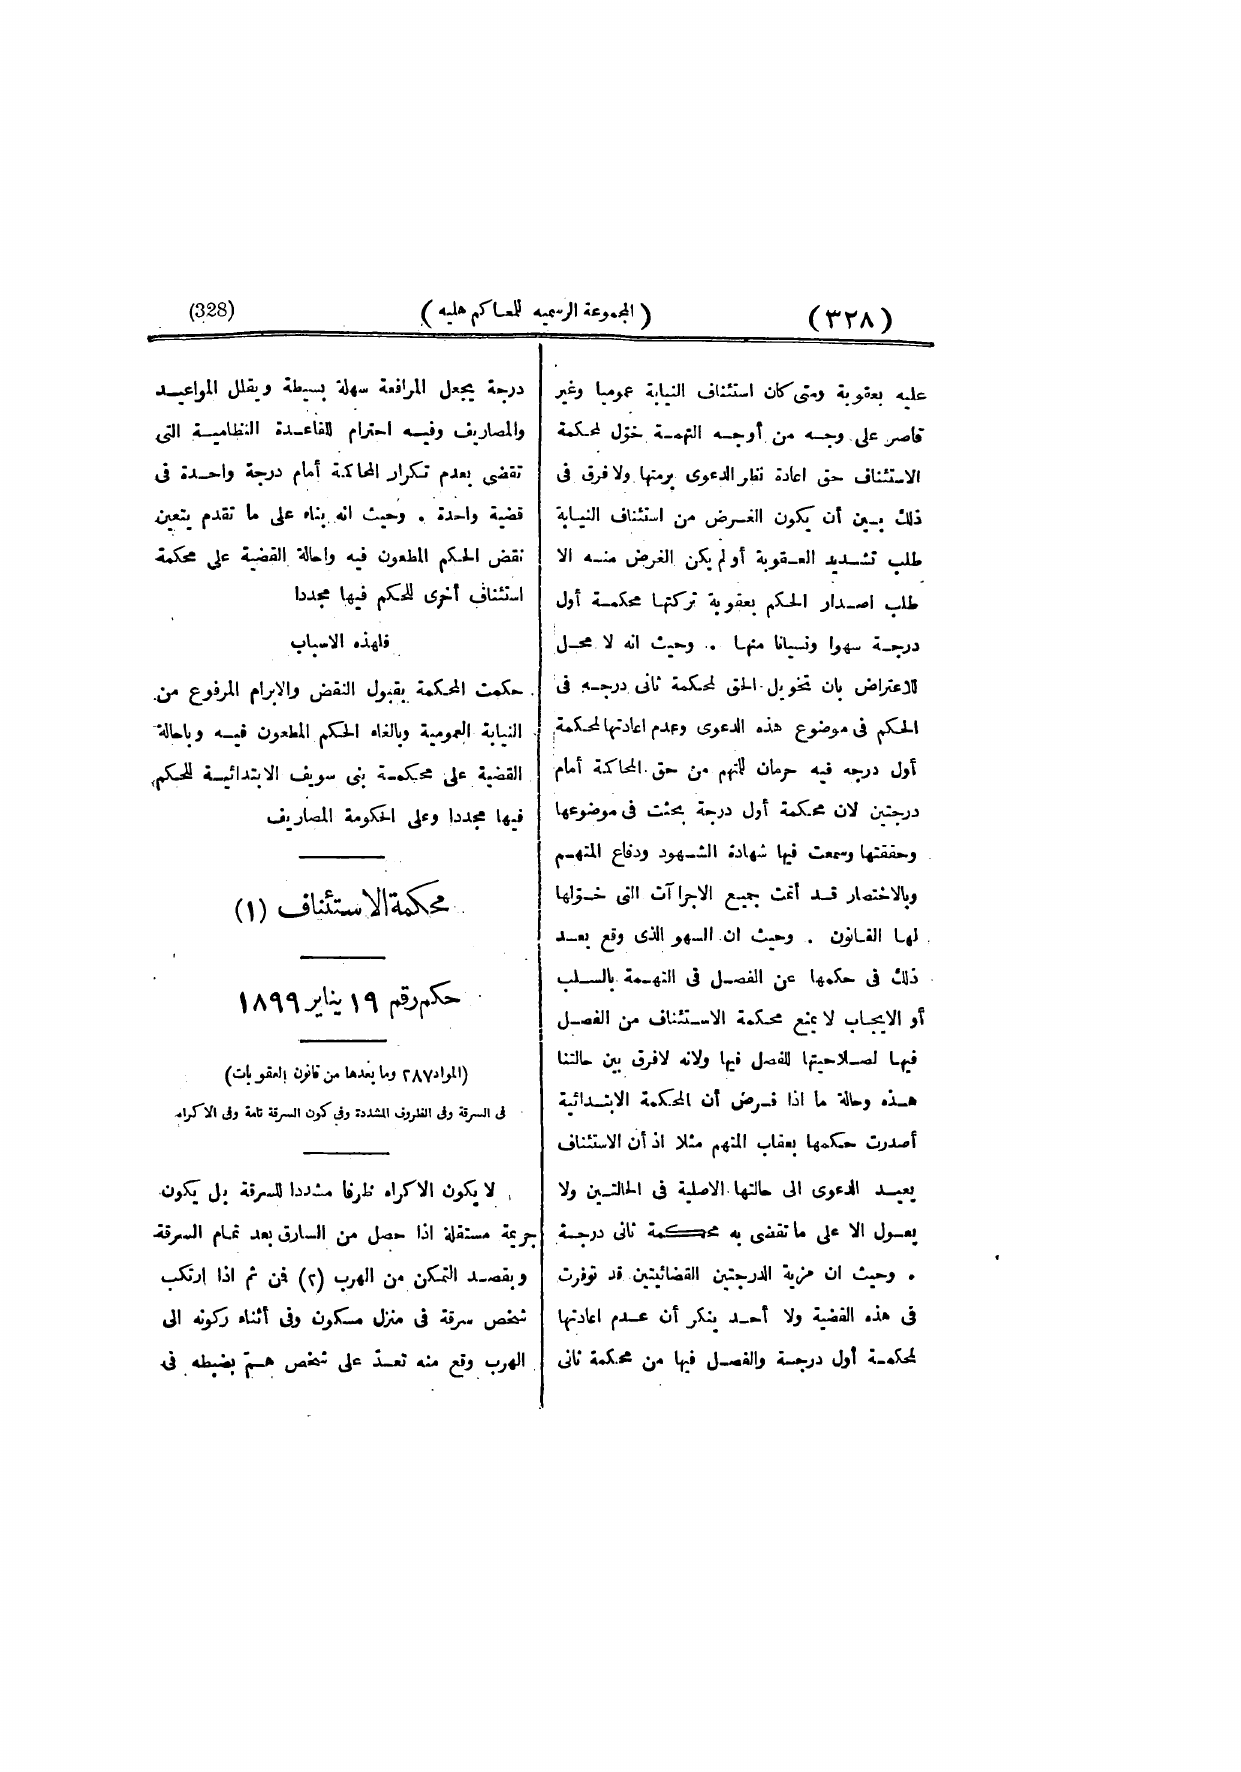 (٣٢٨) (المجموعة الرسميه للمحاكم هليه) (328)
عليه بعقوبة ومتى كان استئناف النيابة عموميا وغير
قاصر على وجه من أوجه التهمة خوّل لمحكمة
الاستئناف حق اعادة نظر الدعوى برمتها ولا فرق فى
ذلك بين أن يكون الغرض من استئناف النيابة
طلب تشديد العقوبة أو لم يكن الغرض منه الا
طلب اصدار الحكم بعقوبة تركتها محكمة أول
درجة سهوا ونسيانا منها . وحيث انه لا محل
للاعتراض بان تخويل الحق لمحكمة ثانى درجه فى
الحكم فى موضوع هذه الدعوى وعدم اعادتها لمحكمة
أول درجه فيه حرمان للتهم من حق المحاكمة أمام
درجتين لان محكمة أول درجة بحثت فى موضوعها
وحققتها وسمعت فيها شهادة الشهود ودفاع المتهم
وبالاختصار قد أتمت جميع الاجراآت التى خوّلها
لها القانون . وحيث ان السهو الذى وقع بعد
ذلك فى حكمها عن الفصل فى التهمة بالسلب
أو الايجاب لا يمنع محكمة الاستئناف من الفصل
فيها لصلاحيتها للفصل فيها ولانه لافرق بين حالتنا
هذه وحالة ما اذا فرض أن المحكمة الابتدائية
أصدرت حكمها بعقاب المتهم مثلا اذ أن الاستئناف
يعيد الدعوى الى حالتها الاصلية فى الحالتين ولا
يعول الا على ما تقضى به محكمة ثانى درجة
. وحيث ان مزية الدرجتين القضائيتين قد توفرت
فى هذه القضية ولا أحد ينكر أن عدم اعادتها
لمحكمة أول درجة والفصل فيها من محكمة ثانى
درجة يجعل المرافعة سهلة بسيطة ويقلل المواعيد
والمصاريف وفيه احترام للقاعدة النظامية التى
تقضى بعدم تكرار المحاكمة أمام درجة واحدة فى
قضية واحدة . وحيث انه بناء على ما تقدم يتعين
نقض الحكم المطعون فيه واحالة القضية على محكمة
استئناف أخرى للحكم فيها مجددا
فلهذه الاسباب
حكمت المحكمة بقبول النقض والابرام المرفوع من
النيابة العمومية وبالغاء الحكم المطعون فيه وباحالة
القضية على محكمة بنى سويف الابتدائية للحكم
فيها مجددا وعلى الحكومة المصاريف
محكمة الاستئناف (١)
حكم رقم ١٩ يناير ١٨٩٩
(المواد ٢٨٧ وما بعدها من قانون العقوبات)
فى السرقة وفى الظروف المشددة وفى كون السرقة تامة وفى الاكراه
لا يكون الاكراه ظرفا مشددا للسرقة بل يكون
جريمة مستقلة اذا حصل من السارق بعد تمام السرقة
وبقصد التمكن من الهرب (٢) فمن ثم اذا ارتكب
شخص سرقة فى منزل مسكون وفى أثناء ركونه الى
الهرب وقع منه تعدّ على شخص همّ بضبطه فى